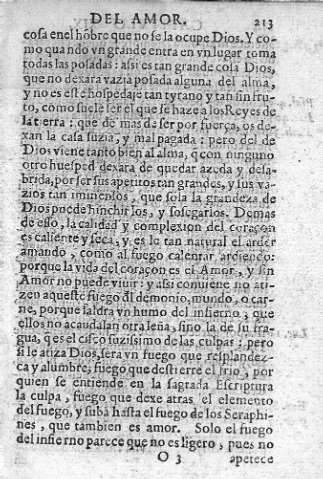 DEL AMOR. 213
cosa enel hõbre que no se la ocupe Dios. Y co-
mo quando vn grande entra en vn lugar toma
todas las posadas: assi es tan grande cosa Dios,
que no dexara vazia posada alguna del alma,
y no es este hospedaje tan tyrano y tan sin fru-
to, como suele ser el que se haze a los Reyes de
la tierra: que de mas da ser por fuerça, os de-
xan la casa suzia, y mal pagada: pero del de
Dios viene tanto bien al alma, q̃ con ninguno
otro huesped dexara de quedar azeda y desa-
brida, por ser sus apetitos tan grandes, y sus va-
zios tan immensos, que sola la grandeza de
Dios puede hinchirlos, y sosegarlos. Demas
de esso, la calidad y complexion del coraçon
es caliente y seca, y es lo tan natural el arder
amando, como al fuego calentar ardiendo:
porque la vida del coraçon es el Amor, y sin
Amor no puede viuir: y assi conuiene no ati-
zen aqueste fuego al demonio, mundo, o car-
ne, porque saldra vn humo del infierno; que
ellos no acaudalan otra leña, sino la de su fra-
gua, q̃ es el cisco suzissimo de las culpas: pero
si le atiza Dios, sera vn fuego que resplandez-
ca y alumbre, fuego que destierre el frio, por
quien se entiende en la sagrada Escriptura
la culpa, fuego que dexe atras el elemento
del fuego, y suba hasta el fuego de los Seraphi-
nes, que tambien es amor. Solo el fuego
del infierno parece que no es ligero, pues no
O 3 apetece